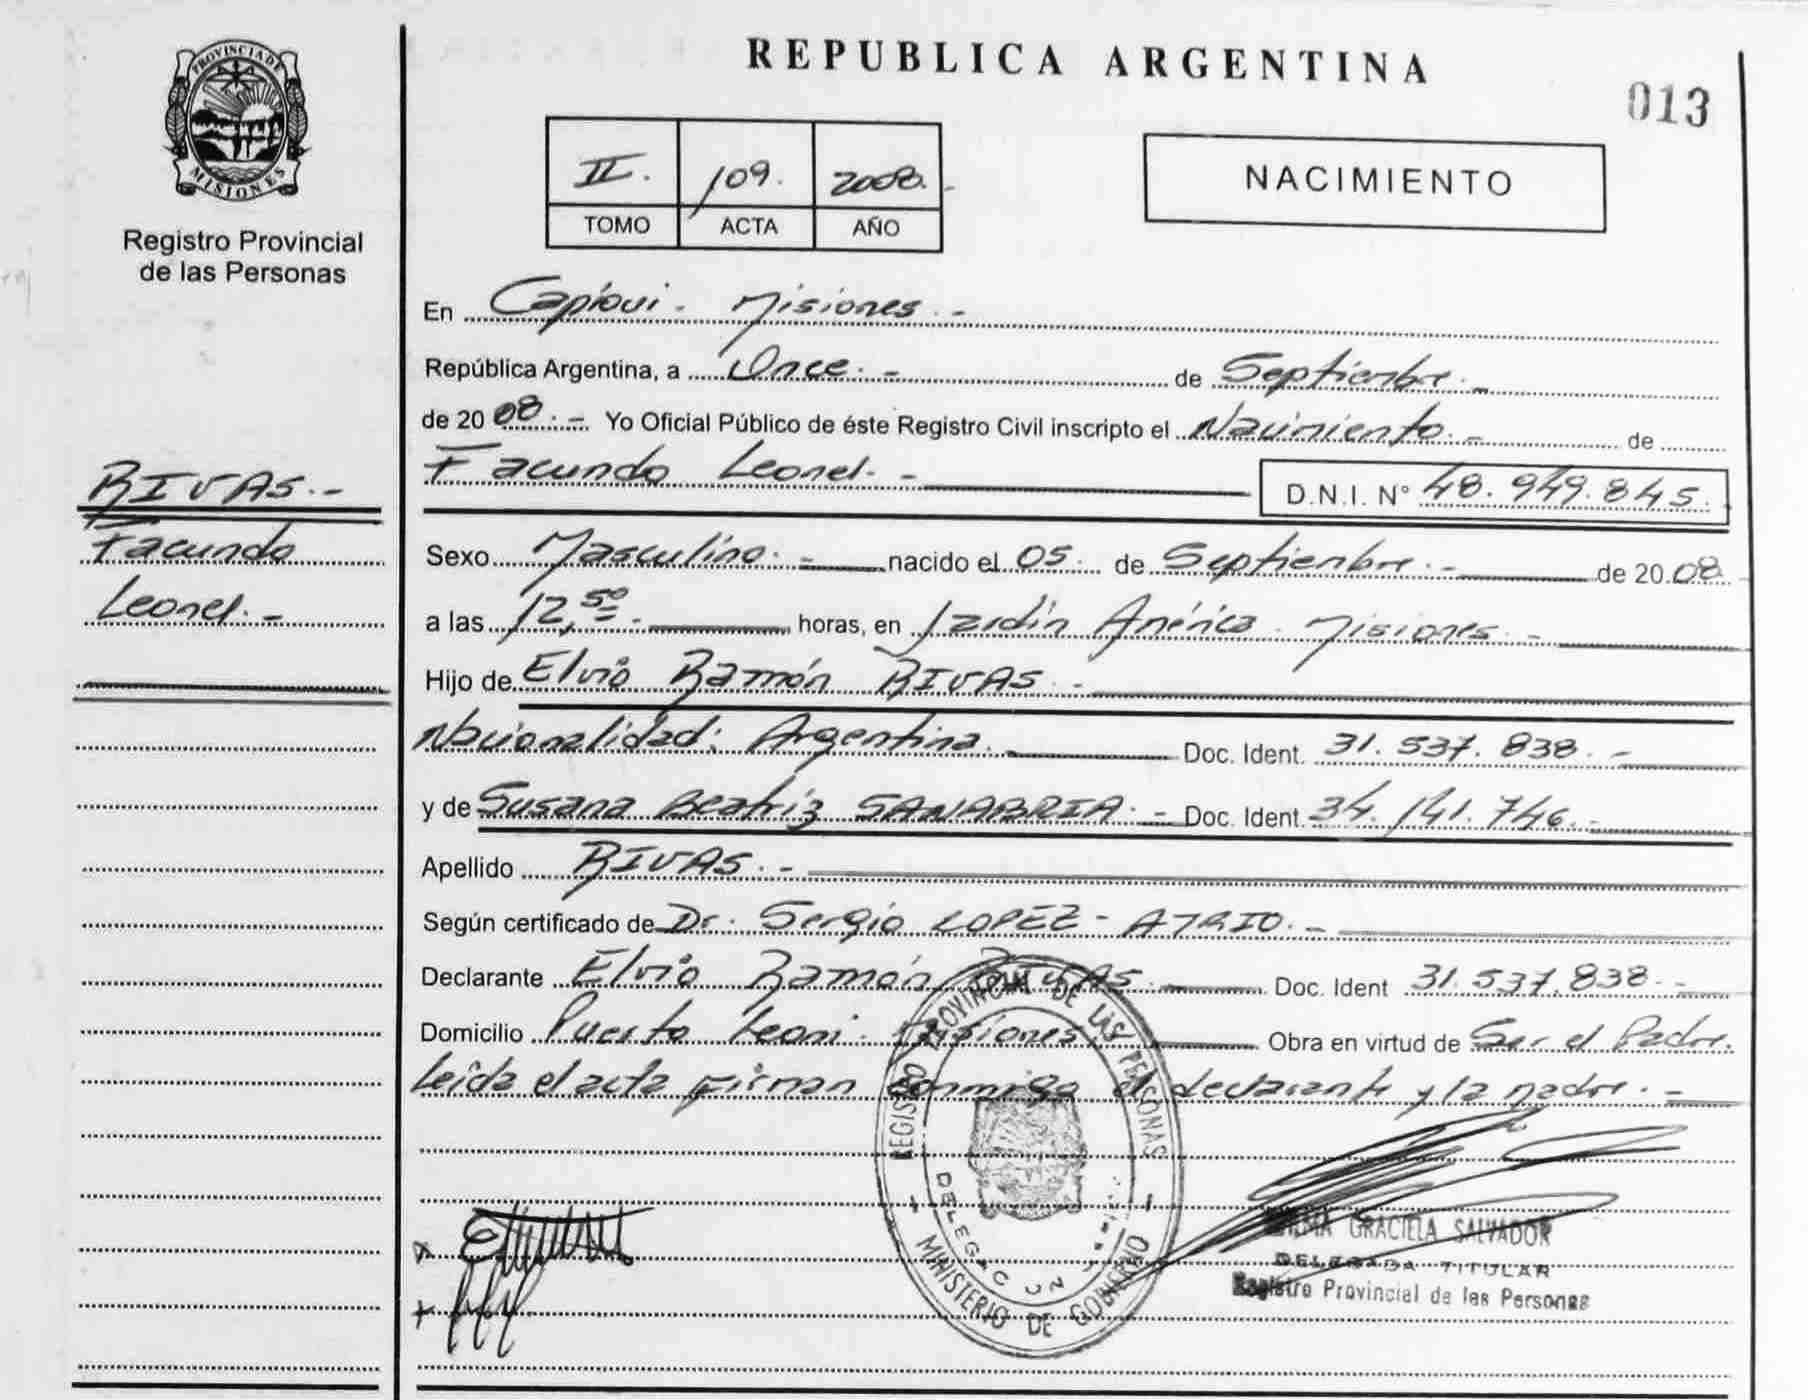 PROVINCIA DE
MISIONES
Registro Provincial
de las Personas
RIVAS.-
Facundo
Leonel.-
REPUBLICA ARGENTINA
013
II. 109. 2008.-
TOMO ACTA AÑO
NACIMIENTO
En Capioui. Misiones.-
República Argentina, a Once.- de Septiembre.-
de 2008.- Yo Oficial Público de éste Registro Civil inscripto el Nacimiento.- de
Facundo Leonel.- D.N.I. N° 48.949.845.
Sexo Masculino.- nacido el 05. de Septiembre.- de 2008.
a las 12,50.- horas, en Jardín América. Misiones.-
Hijo de Elvio Ramón RIVAS.-
Nacionalidad: Argentina.- Doc. Ident. 31.537.838.-
y de Susana Beatriz SANABRIA.- Doc. Ident. 34.141.746.-
Apellido RIVAS.-
Según certificado de Dr. Sergio LOPEZ-ATRIO.-
Declarante Elvio Ramón RIVAS.- Doc. Ident 31.537.838.-
Domicilio Puerto Leoni. Misiones. Obra en virtud de Ser el Padre.
Leída el acta firman conmigo el declarante y la madre.-
REGISTRO PROVINCIAL DE LAS PERSONAS
DELEGACION
MINISTERIO DE GOBIERNO
GRACIELA SALVADOR
DELEGADA TITULAR
Registro Provincial de las Personas